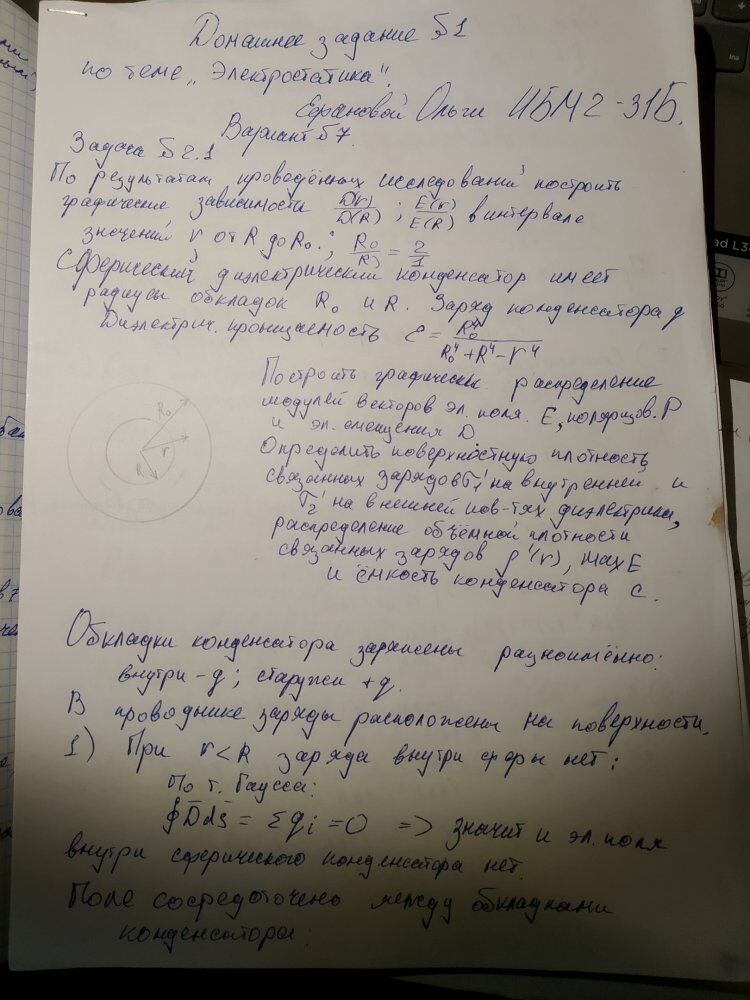 Домашнее задание Б1
по теме „Электростатика".
Ефановой Ольги ИБМ2-31Б.
Вариант Б7.
Задача Б2.1
По результатам проведённых исследований построить
графические зависимости D(r)/D(R) ; E(r)/E(R) в интервале
значений r от R до R₀. ; R₀/R = 2/1
Сферический диэлектрический конденсатор имеет
радиусы обкладок R₀ и R. Заряд конденсатора q
Диэлектрич. проницаемость ε = R₀⁴/(R₀⁴+R⁴-r⁴)
Построить графически распределение
модулей векторов эл. поля E, поляризов. P
и эл. смещения D
Определить поверхностную плотность
связанных зарядов σ₁' на внутренней и
σ₂' на внешней пов-тях диэлектрика,
распределение объёмной плотности
связанных зарядов ρ'(r), max E
и ёмкость конденсатора C.
R₀
r
R
Обкладки конденсатора заряжены разноимённо:
внутри -q; снаружи +q.
В проводнике заряды расположены на поверхности.
1) При r < R заряда внутри сферы нет:
По т. Гаусса:
∮D̄ds̄ = Σqi = 0 => значит и эл. поля
внутри сферического конденсатора нет.
Поле сосредоточено между обкладками
конденсатора:
ad L3